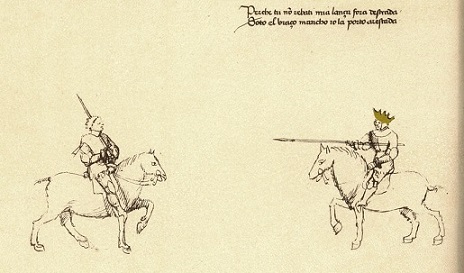 Perche tu nō rebati mia lança fora destrada
Soto el braço mancho io la porto arestada